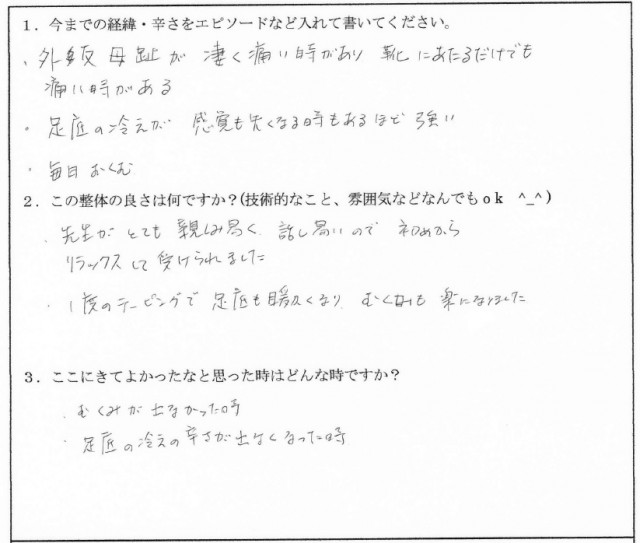 1．今までの経緯・辛さをエピソードなど入れて書いてください。
・外反母趾が 凄く痛い時があり 靴にあたるだけでも
痛い時がある
・足底の冷えが 感覚も失くなる時もあるほど 強い
・毎日むくむ
2．この整体の良さは何ですか？(技術的なこと、雰囲気などなんでもｏｋ ^_^)
・先生がとても親しみ易く、話し易いので 初めから
リラックスして受けられました
・1度のテーピングで 足底も暖かくなり、むくみも 楽になりました
3．ここにきてよかったなと思った時はどんな時ですか？
・むくみが出なかった時
・足底の冷えの辛さが出なくなった時